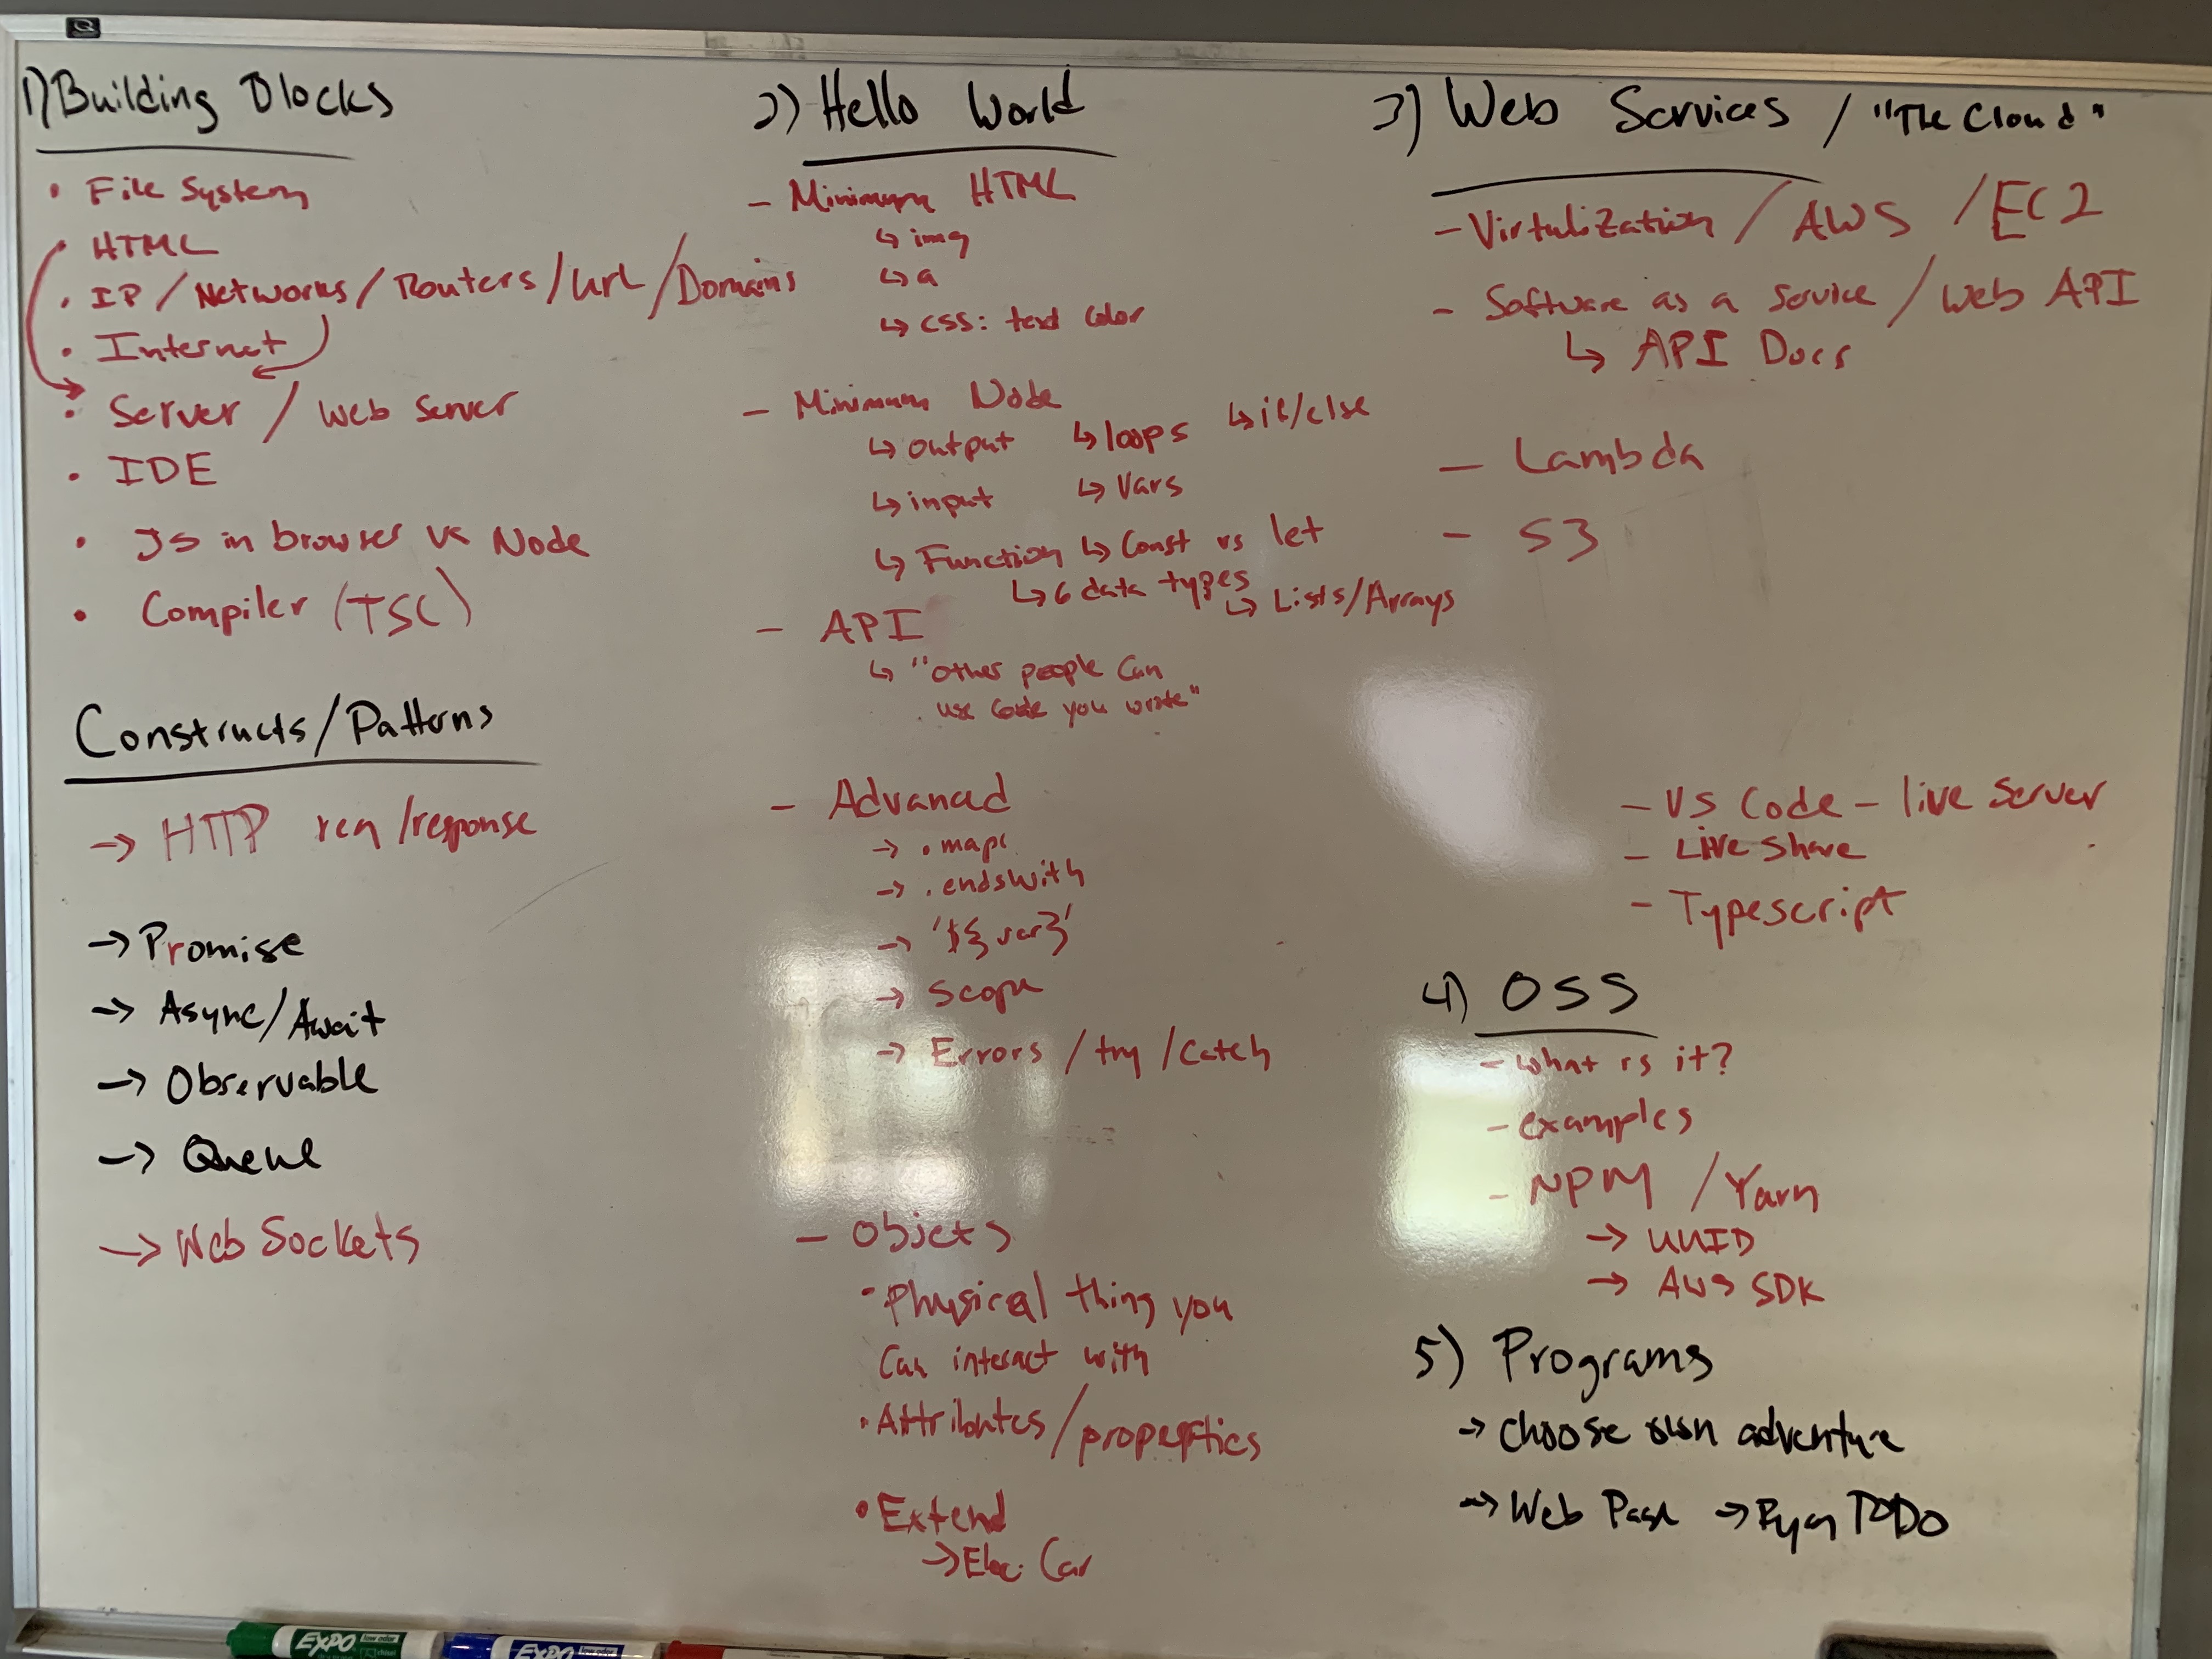 1) Building Blocks
• File System
• HTML
• IP / Networks / Routers / url / Domains
• Internet
• Server / Web Server
• IDE
• JS in browser vs Node
• Compiler (TSC)
Constructs/Patterns
→ HTTP req /response
→ Promise
→ Async/Await
→ Observable
→ Queue
→ Web Sockets
2) Hello World
- Minimum HTML
↳ img
↳ a
↳ css: text color
- Minimum Node
↳ output ↳ loops ↳ if/else
↳ input ↳ Vars
↳ Function ↳ Const vs let
↳ 6 data types ↳ Lists/Arrays
- API
↳ "other people can
use code you wrote"
- Advanced
→ .map(
→ .endswith
→ '${var}'
→ Scope
→ Errors / try / catch
- Objects
• Physical thing you
can interact with
• Attributes/properties
• Extend
→ Elec. Car
3) Web Services / "The Cloud"
- Virtulization / AWS / EC2
- Software as a Service / Web API
↳ API Docs
- Lambda
- S3
- VS Code - live Server
- Live Share
- Typescript
4) OSS
- what is it?
- examples
- NPM / Yarn
→ UUID
→ AWS SDK
5) Programs
→ Choose own adventure
→ Web Page → Ryan TODO
EXPO low odor
EXPO low odor